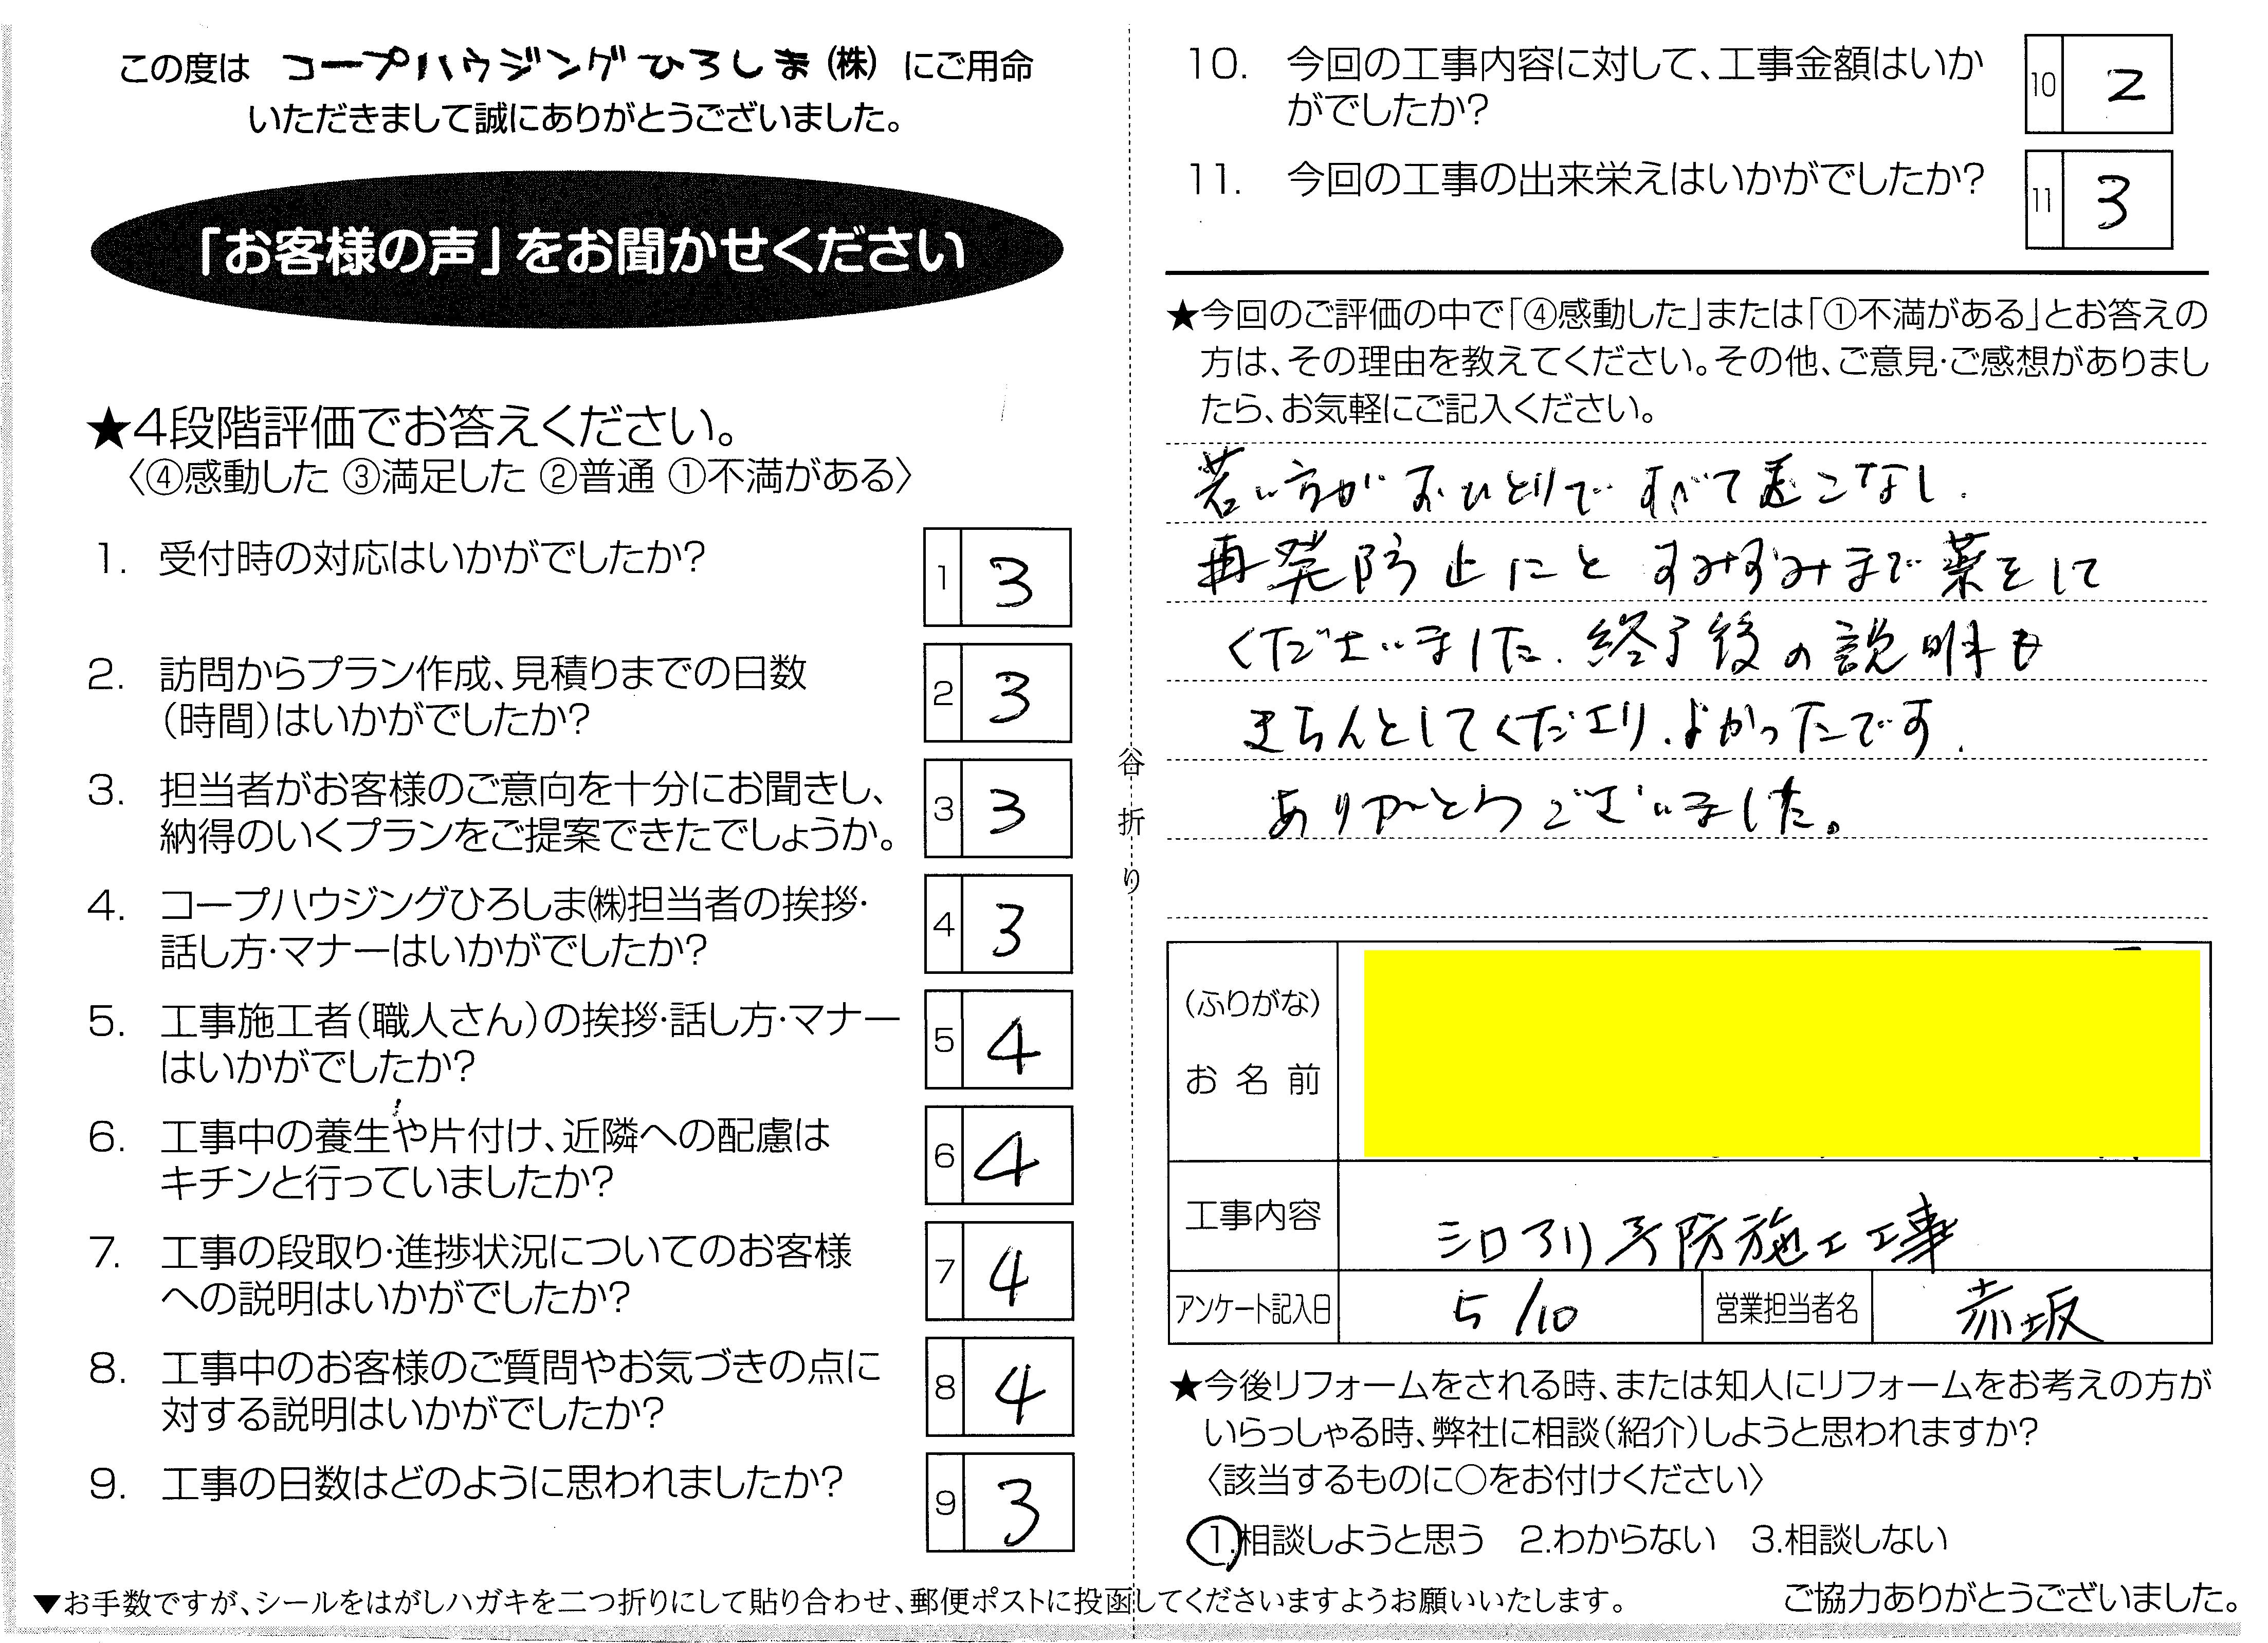 この度は コープハウジングひろしま(株) にご用命
いただきまして誠にありがとうございました。
「お客様の声」をお聞かせください
★4段階評価でお答えください。
〈④感動した ③満足した ②普通 ①不満がある〉
1. 受付時の対応はいかがでしたか?
1 3
2. 訪問からプラン作成、見積りまでの日数
(時間)はいかがでしたか?
2 3
3. 担当者がお客様のご意向を十分にお聞きし、
納得のいくプランをご提案できたでしょうか。
3 3
4. コープハウジングひろしま㈱担当者の挨拶・
話し方・マナーはいかがでしたか?
4 3
5. 工事施工者(職人さん)の挨拶・話し方・マナー
はいかがでしたか?
5 4
6. 工事中の養生や片付け、近隣への配慮は
キチンと行っていましたか?
6 4
7. 工事の段取り・進捗状況についてのお客様
への説明はいかがでしたか?
7 4
8. 工事中のお客様のご質問やお気づきの点に
対する説明はいかがでしたか?
8 4
9. 工事の日数はどのように思われましたか?
9 3
▼お手数ですが、シールをはがしハガキを二つ折りにして貼り合わせ、郵便ポストに投函してくださいますようお願いいたします。
谷折り
10. 今回の工事内容に対して、工事金額はいか
がでしたか?
10 2
11. 今回の工事の出来栄えはいかがでしたか?
11 3
★今回のご評価の中で「④感動した」または「①不満がある」とお答えの
方は、その理由を教えてください。その他、ご意見・ご感想がありまし
たら、お気軽にご記入ください。
若い方がおひとりで すべて こなし.
再発防止にと すみずみまで薬をして
くださいました. 終了後の説明も
きちんとしてくださり、よかったです.
ありがとうございました。
(ふりがな)
お名前
工事内容 シロアリ予防施工工事
アンケート記入日 5/10 営業担当者名 赤坂
★今後リフォームをされる時、または知人にリフォームをお考えの方が
いらっしゃる時、弊社に相談(紹介)しようと思われますか?
〈該当するものに○をお付けください〉
1.相談しようと思う 2.わからない 3.相談しない
ご協力ありがとうございました。